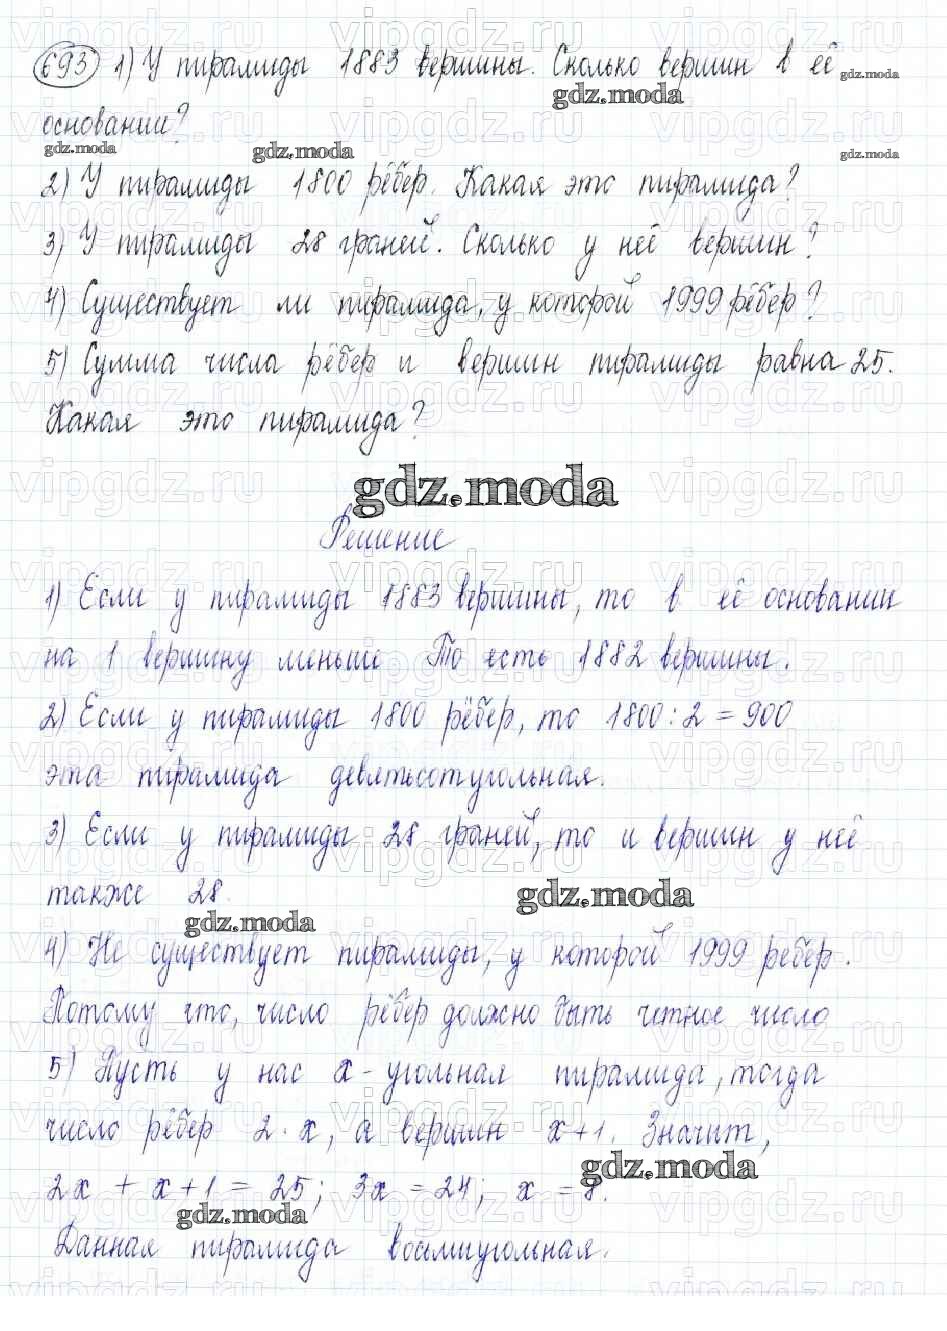 693 1) У пирамиды 1883 вершины. Сколько вершин в её
основании?
2) У пирамиды 1800 рёбер. Какая это пирамида?
3) У пирамиды 28 граней. Сколько у неё вершин?
4) Существует ли пирамида, у которой 1999 рёбер?
5) Сумма числа рёбер и вершин пирамиды равна 25.
Какая это пирамида?
gdz.moda
Решение
1) Если у пирамиды 1883 вершины, то в её основании
на 1 вершину меньше. То есть 1882 вершины.
2) Если у пирамиды 1800 рёбер, то 1800:2=900
эта пирамида девятьсотугольная.
3) Если у пирамиды 28 граней, то и вершин у неё
также 28.
4) Не существует пирамиды, у которой 1999 рёбер.
Потому что, число рёбер должно быть четное число
5) Пусть у нас x-угольная пирамида, тогда
число рёбер 2·x, а вершин x+1. Значит,
2x + x+1 = 25; 3x = 24; x = 8.
Данная пирамида восьмиугольная.